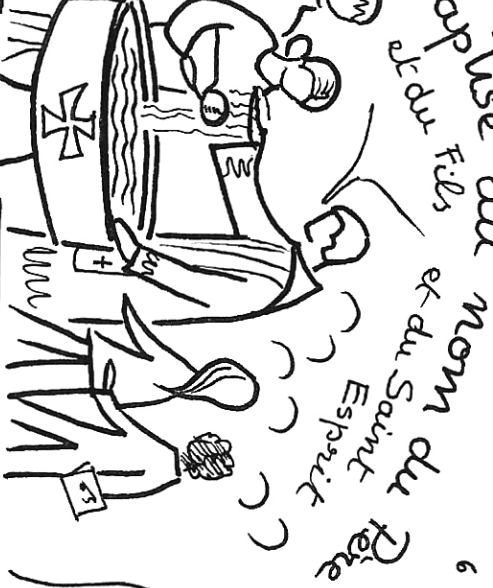 aptise au nom du Père
et du Fils
et du Saint
Esprit
6